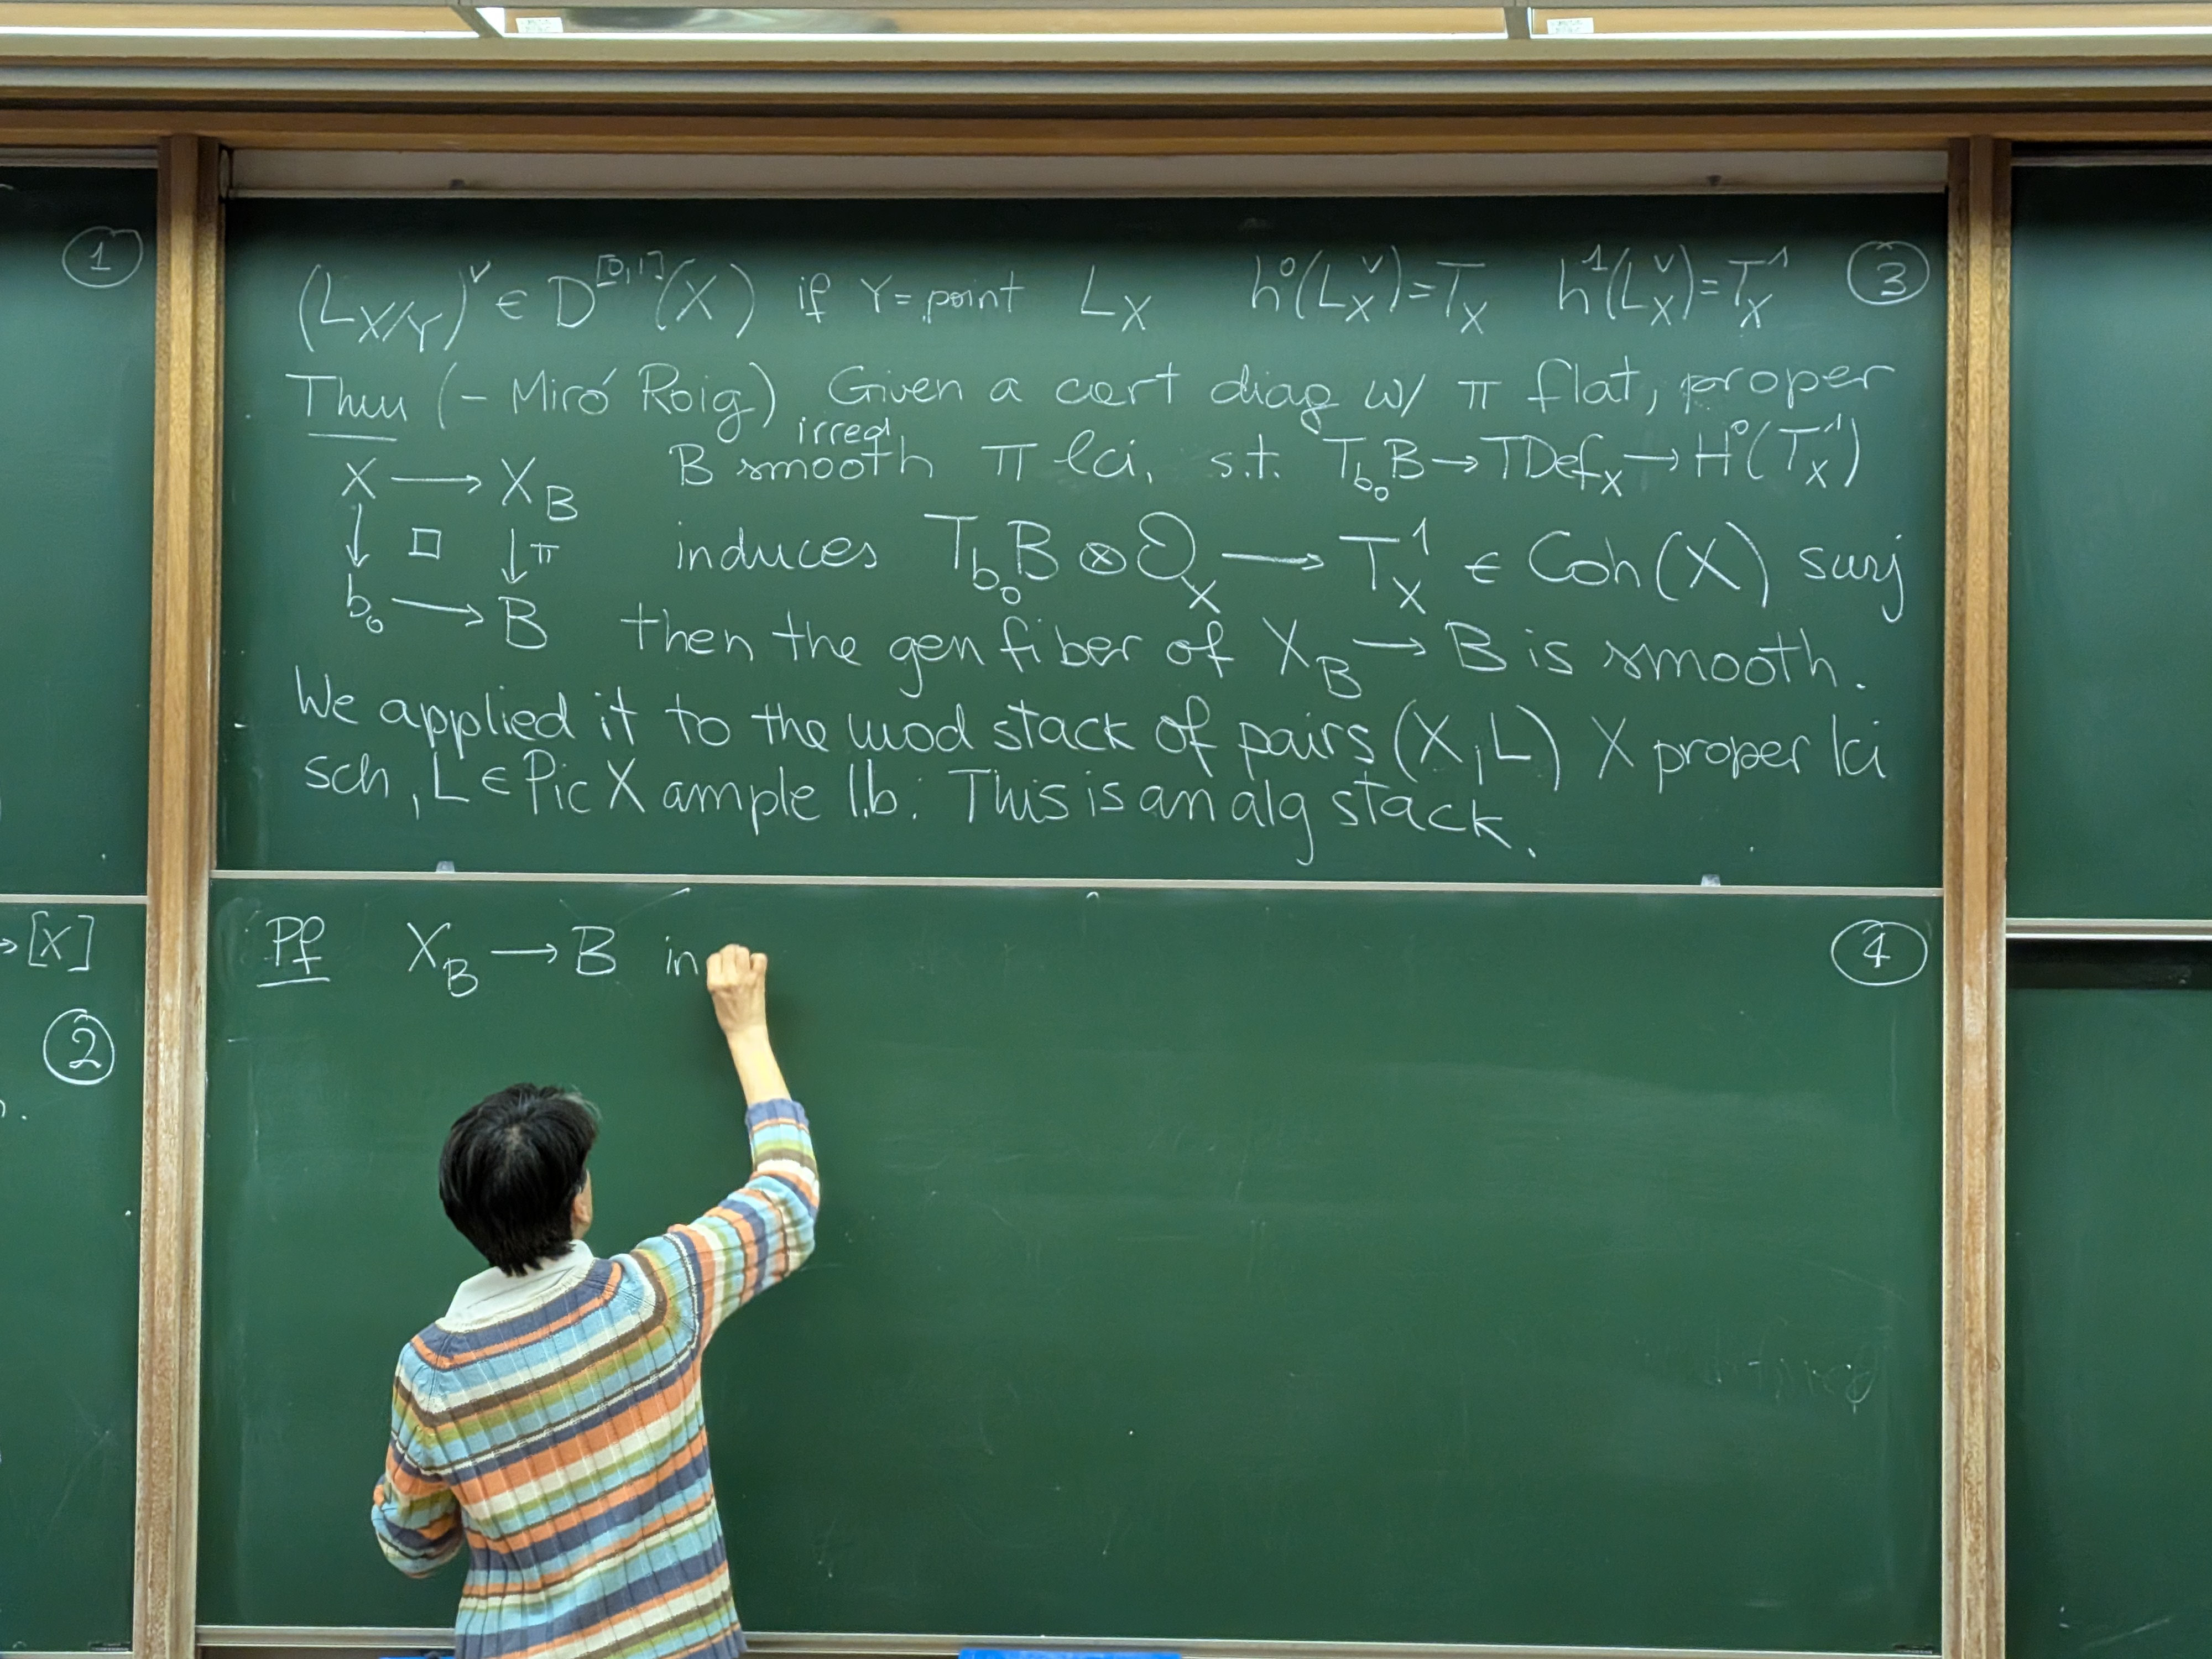 ①
(L_{X/Y})^∨ ∈ D^{[0,1]}(X) if Y = point L_X h⁰(L_X^∨) = T_X h¹(L_X^∨) = T_X^1 ③
Thm (– Miró Roig) Given a cart diag w/ π flat, proper
irred
X → X_B B smooth π lci, s.t. T_{b_0}B → TDef_X → H⁰(T_X^1)
↓ □ ↓π induces T_{b_0}B ⊗ O_X → T_X^1 ∈ Coh(X) surj
b_0 → B then the gen fiber of X_B → B is smooth.
We applied it to the mod stack of pairs (X, L) X proper lci
sch, L ∈ Pic X ample l.b. This is an alg stack.
→ [X]
②
Pf X_B → B in ④